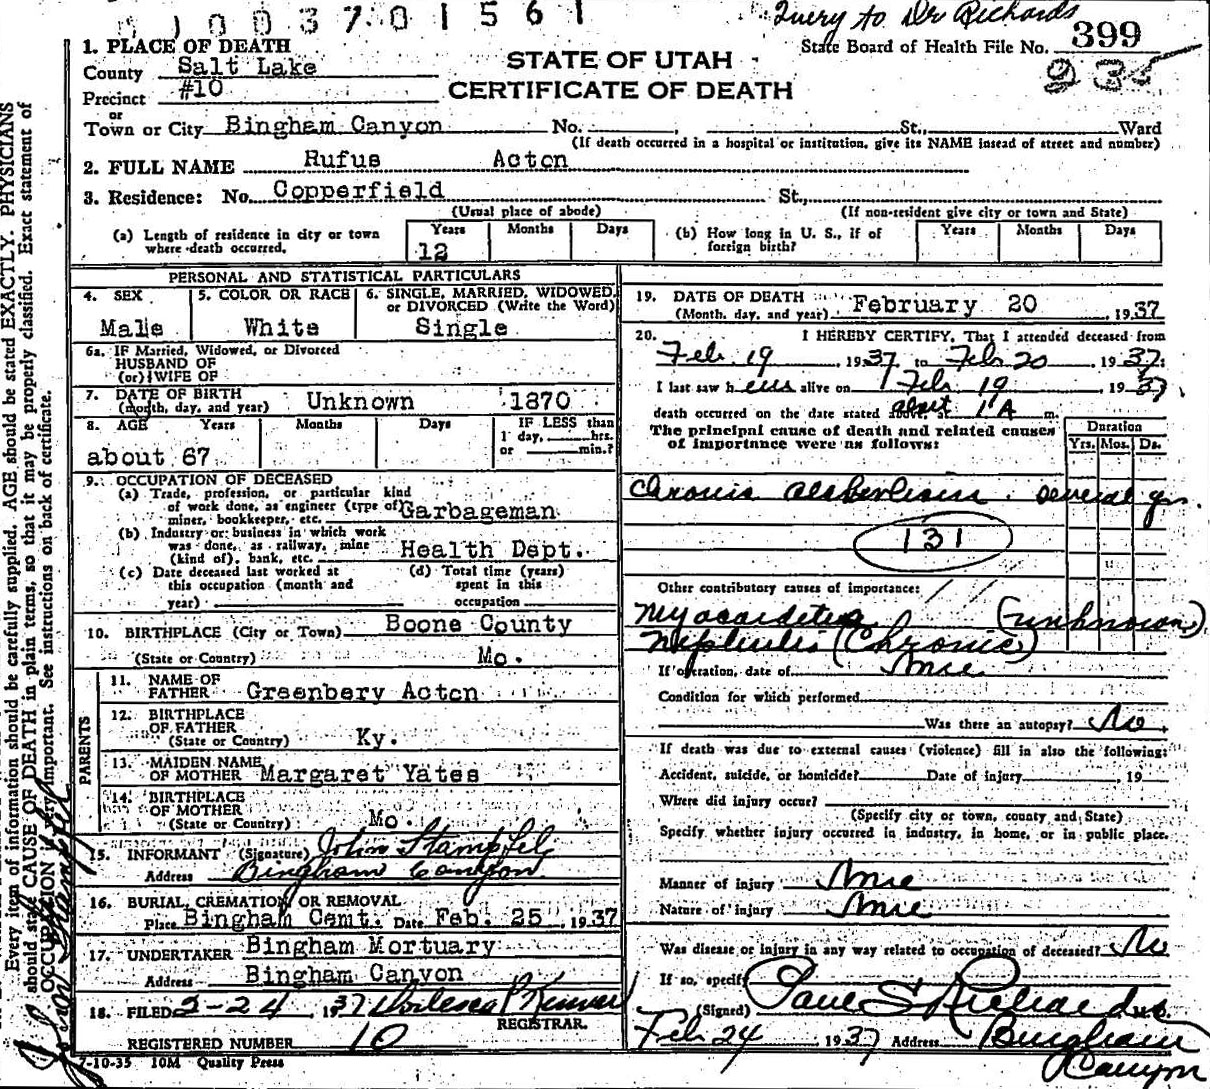 Query to Dr Richards
1. PLACE OF DEATH
State Board of Health File No. 399
County Salt Lake
STATE OF UTAH
Precinct #10
CERTIFICATE OF DEATH
or
Town or City Bingham Canyon No. , St., Ward
(If death occurred in a hospital or institution, give its NAME insead of street and number)
2. FULL NAME Rufus Acton
3. Residence: No. Copperfield St.,
(Usual place of abode) (If non-resident give city or town and State)
(a) Length of residence in city or town where death occurred. Years 12 Months Days
(b) How long in U. S., if of foreign birth? Years Months Days
PERSONAL AND STATISTICAL PARTICULARS
4. SEX Male
5. COLOR OR RACE White
6. SINGLE, MARRIED, WIDOWED, or DIVORCED (Write the Word) Single
6a. IF Married, Widowed, or Divorced
HUSBAND OF
(or) WIFE OF
7. DATE OF BIRTH (month, day, and year) Unknown 1870
8. AGE Years Months Days IF LESS than
1 day, hrs.
or min.?
about 67
9. OCCUPATION OF DECEASED
(a) Trade, profession, or particular kind
of work done, as engineer (type of
miner, bookkeeper, etc. Garbageman
(b) Industry or business in which work
was done, as railway, mine
(kind of), bank, etc. Health Dept.
(c) Date deceased last worked at
this occupation (month and
year)
(d) Total time (years)
spent in this
occupation
10. BIRTHPLACE (City or Town) Boone County
(State or Country) Mo.
PARENTS
11. NAME OF FATHER Greenbery Acton
12. BIRTHPLACE OF FATHER
(State or Country) Ky.
13. MAIDEN NAME OF MOTHER Margaret Yates
14. BIRTHPLACE OF MOTHER
(State or Country) Mo.
15. INFORMANT (Signature) John Stampfel
Address Bingham Canyon
16. BURIAL, CREMATION OR REMOVAL
Place Bingham Cemt. Date Feb. 25, 1937
17. UNDERTAKER Bingham Mortuary
Address Bingham Canyon
18. FILED 2-24 1937
REGISTRAR.
REGISTERED NUMBER 10
7-10-35 10M Quality Press
19. DATE OF DEATH
(Month, day, and year) February 20, 1937
20. I HEREBY CERTIFY, That I attended deceased from
Feb. 19, 1937, to Feb 20, 1937;
I last saw h alive on Feb 19, 1937,
death occurred on the date stated above, at about 1 A m.
The principal cause of death and related causes
of importance were as follows:
Duration
Yrs. Mos. Ds.
Chronic alcoholism several yrs.
131
Other contributory causes of importance:
Myocarditis (unknown)
Nephritis (Chronic)
If operation, date of None
Condition for which performed
Was there an autopsy? No
If death was due to external causes (violence) fill in also the following:
Accident, suicide, or homicide? Date of injury , 19
Where did injury occur?
(Specify city or town, county and State)
Specify whether injury occurred in industry, in home, or in public place.
Manner of injury None
Nature of injury None
Was disease or injury in any way related to occupation of deceased? No
If so, specify
(Signed) Paul S Richards M.D.
Feb 24, 1937 Address Bingham
Canyon
Every item of information should be carefully supplied. AGE should be stated EXACTLY. PHYSICIANS
should state CAUSE OF DEATH in plain terms, so that it may be properly classified. Exact statement of
OCCUPATION is very important. See instructions on back of certificate.
John Stampfel